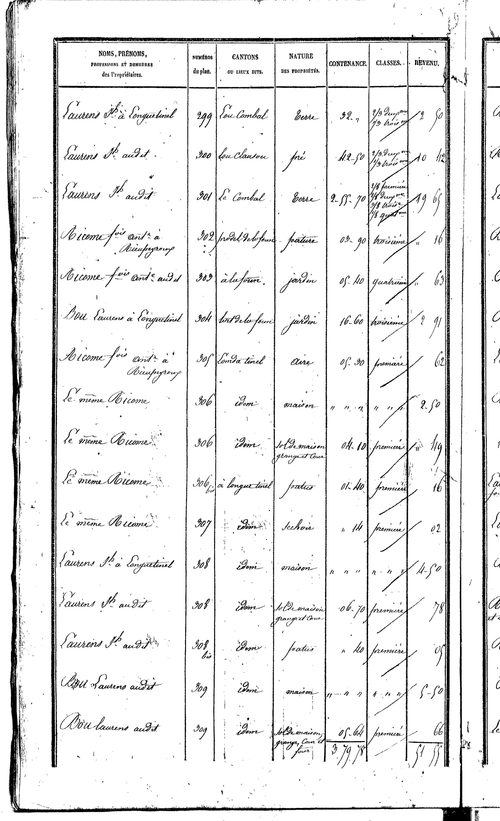 NOMS, PRÉNOMS, PROFESSIONS ET DEMEURES des Propriétaires. NUMÉROS du plan. CANTONS OU LIEUX DITS. NATURE DES PROPRIÉTÉS. CONTENANCE. CLASSES. REVENU.
Laurens Jh à Longuetinel 299 Lou Combal Terre 32 " 2 50
Laurens Jh audit 300 Lou Clausou pré 42-50 10 42
Laurens Jh audit 301 Le Combal Terre 2-55-70 19 65
Ricome fois ant. à Rieupeyroux 302 pature 03-90 troisième " 16
Ricome fois ant. audit 303 à la font jardin 05-40 quatrième " 63
Bou Laurens à Longuetinel 304 jardin 16-60 troisième 2 91
Ricome fois ant. à Rieupeyroux 305 aire 05-30 première 62
Le même Ricome 306 idem maison " " " " " " 2-50
Le même Ricome 306 idem sol de maison grange et Cour 04-10 première " 49
Le même Ricome 306 bis à longuetinel patus 01-40 première 16
Le même Ricome 307 idem sechoir " 14 première 02
Laurens Jh à Longuetinel 308 idem maison " " " " " " 4-50
Laurens Jh audit 308 idem sol de maison grange et Cour 06-70 première 78
Laurens Jh audit 308 bis idem patus " 40 première 05
Bou Laurens audit 309 idem maison " " " " " " 5-50
Bou Laurens audit 309 idem sol de maison, grange, Cour et four 05-64 première 66
3 79 78 51 55